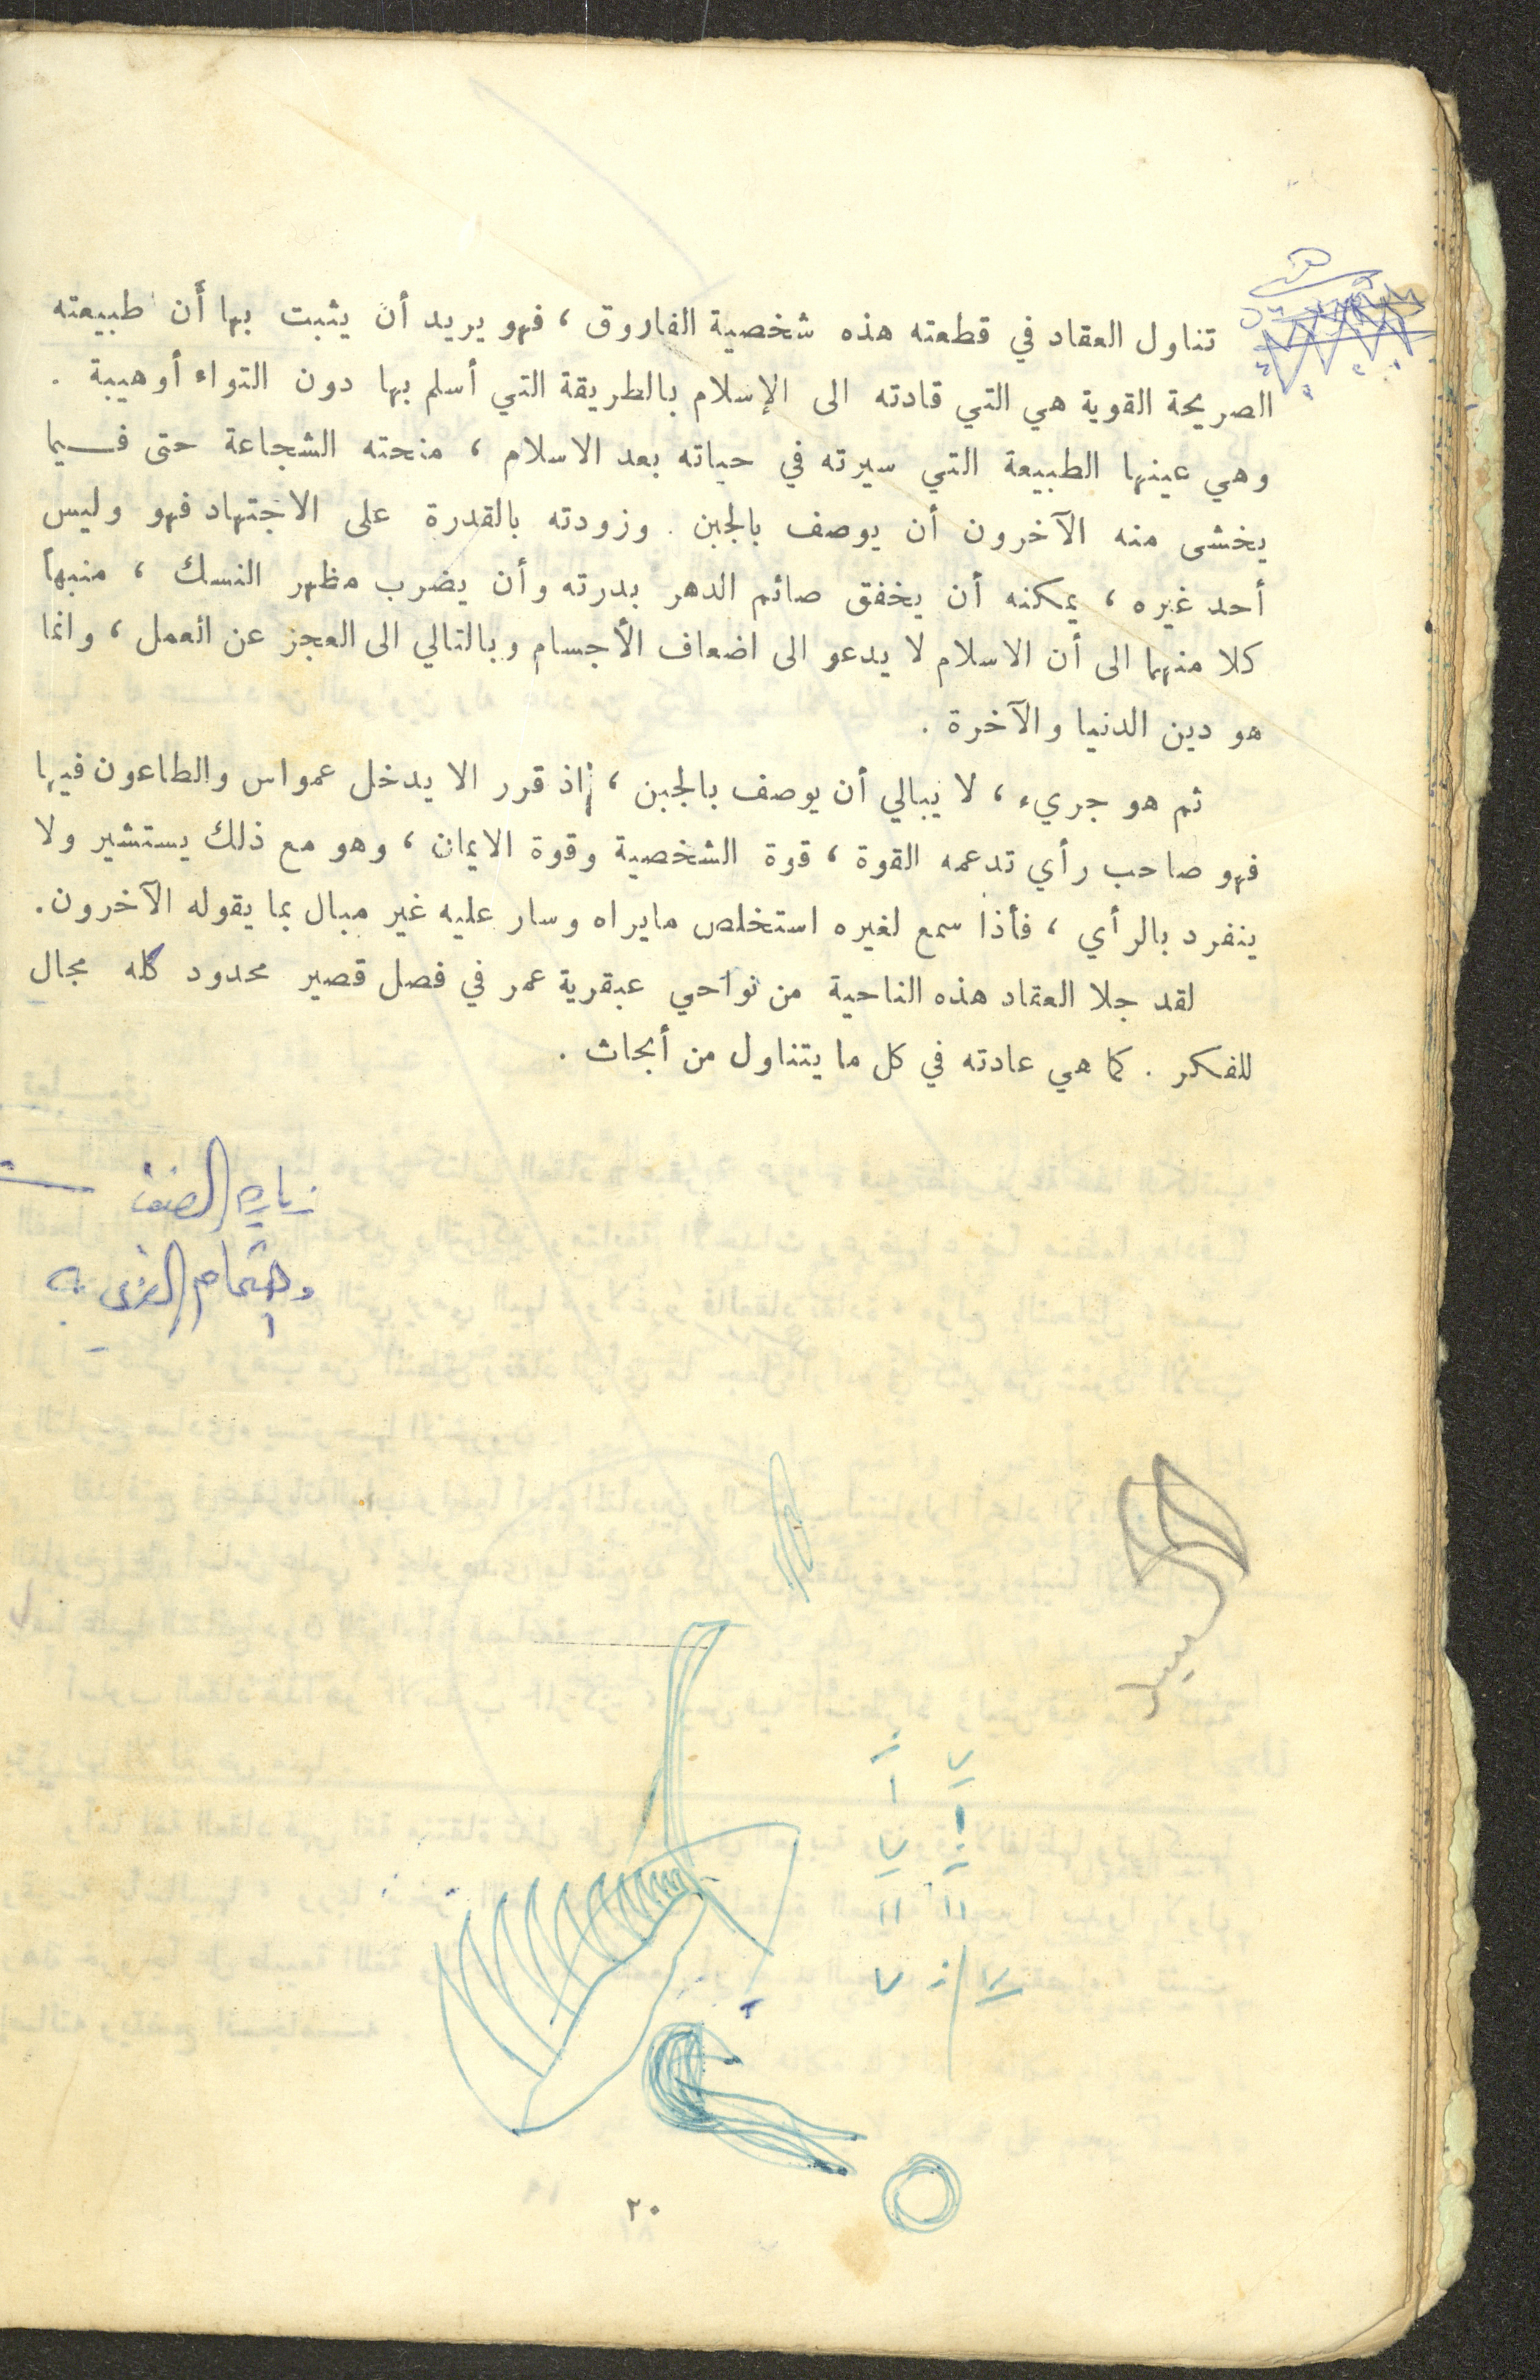 تناول العقاد في قطعته هذه شخصية الفاروق ، فهو يريد أن يثبت بها أن طبيعته
الصريحة القوية هي التي قادته الى الإسلام بالطريقة التي أسلم بها دون التواء أو هيبة .
وهي عينها الطبيعة التي سيرته في حياته بعد الاسلام ، منحته الشجاعة حتى فـــيما
يخشى منه الآخرون أن يوصف بالجبن . وزودته بالقدرة على الاجتهاد فهو وليس
أحد غيره ، يمكنه أن يخفق صائم الدهر بدرته وأن يضرب مظهر النسك ، منبهاً
كلا منهما الى أن الاسلام لا يدعو الى اضعاف الأجسام وبالتالي الى العجز عن العمل ، وانما
هو دين الدنيا والآخرة .
ثم هو جريء ، لا يبالي أن يوصف بالجبن ، إذ قرر الا يدخل عمواس والطاعون فيها
فهو صاحب رأي تدعمه القوة ، قوة الشخصية وقوة الايمان ، وهو مع ذلك يستشير ولا
ينفرد بالرأي ، فأذا سمع لغيره استخلص مايراه وسار عليه غير مبال بما يقوله الآخرون .
لقد جلا العقاد هذه الناحية من نواحي عبقرية عمر في فصل قصير محدود كله مجال
للفكر . كما هي عادته في كل ما يتناول من أبحاث .
٢٠